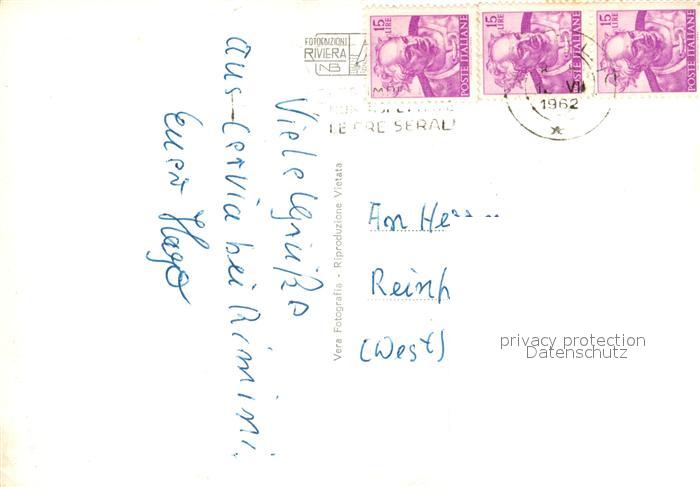 15 LIRE POSTE ITALIANE
15 LIRE POSTE ITALIANE
15 LIRE POSTE ITALIANE
FOTOEDIZIONI
RIVIERA
NB
1962
LE ORE SERALI
Viele Grüße
aus Cervia bei Rimini.
Euer Hugo
Vera Fotografia - Riproduzione Vietata
An Herrn
(West)
privacy protection
Datenschutz